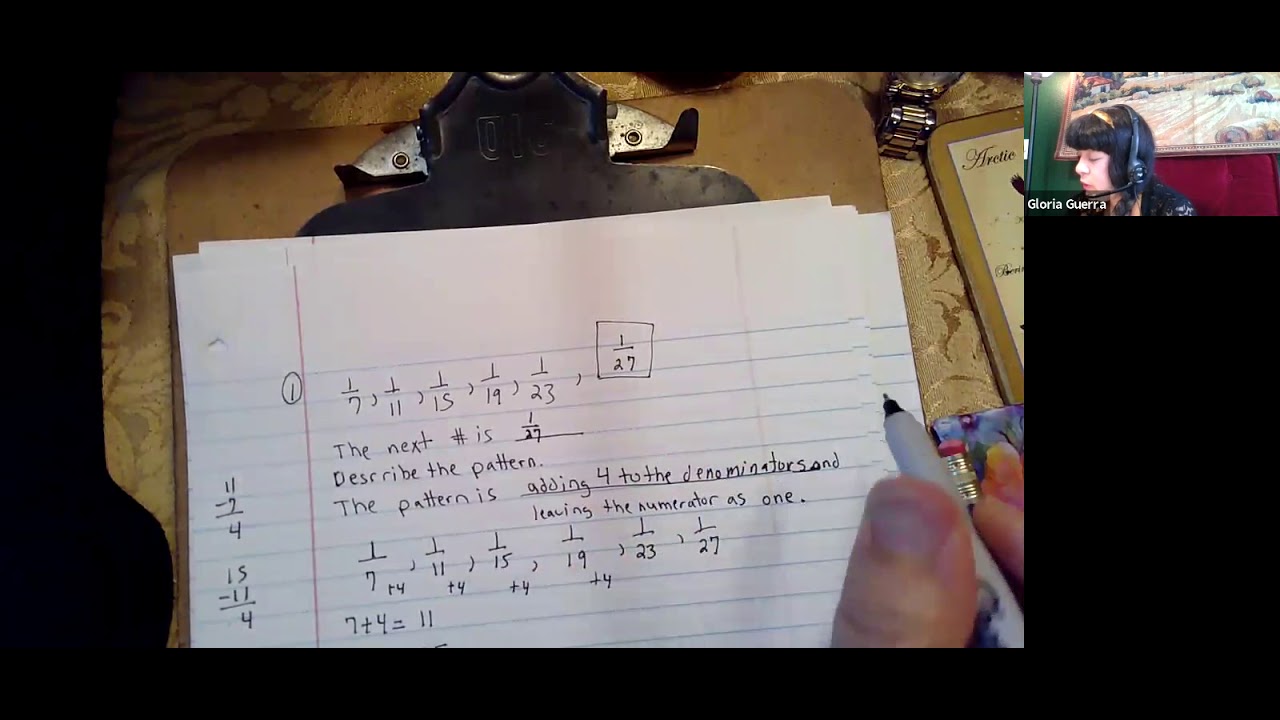 Arctic
Gloria Guerra
1
27
①
1/7, 1/11, 1/15, 1/19, 1/23,
The next # is 1/27
Describe the pattern.
The pattern is adding 4 to the denominators and
leaving the numerator as one.
11
-7
4
1/7, 1/11, 1/15, 1/19, 1/23, 1/27
+4 +4 +4 +4
15
-11
4
7+4= 11